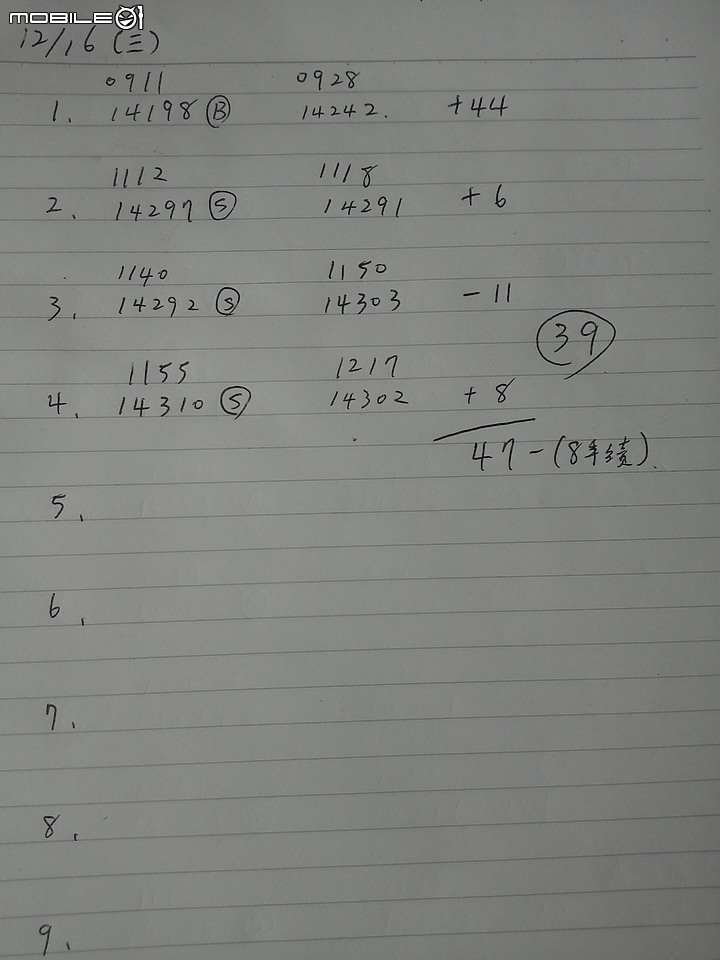 MOBILE01
12/16 (三)
0911 0928
1. 14198 Ⓑ 14242. +44
1112 1118
2. 14297 Ⓢ 14291 + 6
1140 1150
3. 14292 Ⓢ 14303 - 11
39
1155 1217
4. 14310 Ⓢ 14302 + 8
47 - (8手續).
5.
6.
7.
8.
9.